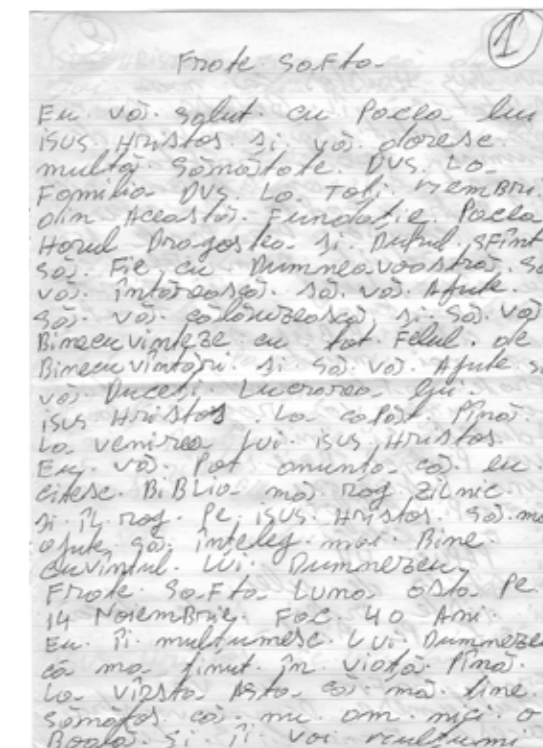 1
Frate Safta
Eu vă salut cu Pacea lui
isus Hristos. si vă doresc
multă Sămătate. DVS. La
Familia DVS. La Toți memBri
din Această Fundație. Pacea
Harul Dragostea si Duhul SFînt
să Fie cu Dumneavoastră. să
vă întărească. să vă Ajute.
să vă călăuzească, si să vă
Binecuvinteze cu tot Felul de
Binecuvîntări. si să vă Ajute să
vă Duceți Lucrarea lui
isus Hristos La capăt Pînă
La venirea lui isus Hristos.
Eu vă Pot anunța că eu
citesc BiBlia mă rog zilnic
si îl rog Pe isus Hristos să mă
ajute să înțeleg mai Bine
cuvîntul Lui Dumnezeu
Frate Safta Luna asta Pe
14 NoiemBrie Fac 40 Ani.
Eu îi mulțumesc Lui Dumnezeu
că ma ținut în viață Pînă
La vîrsta Asta că mă ține
sămătos că nu am nici o
Boală si îi voi mulțumi